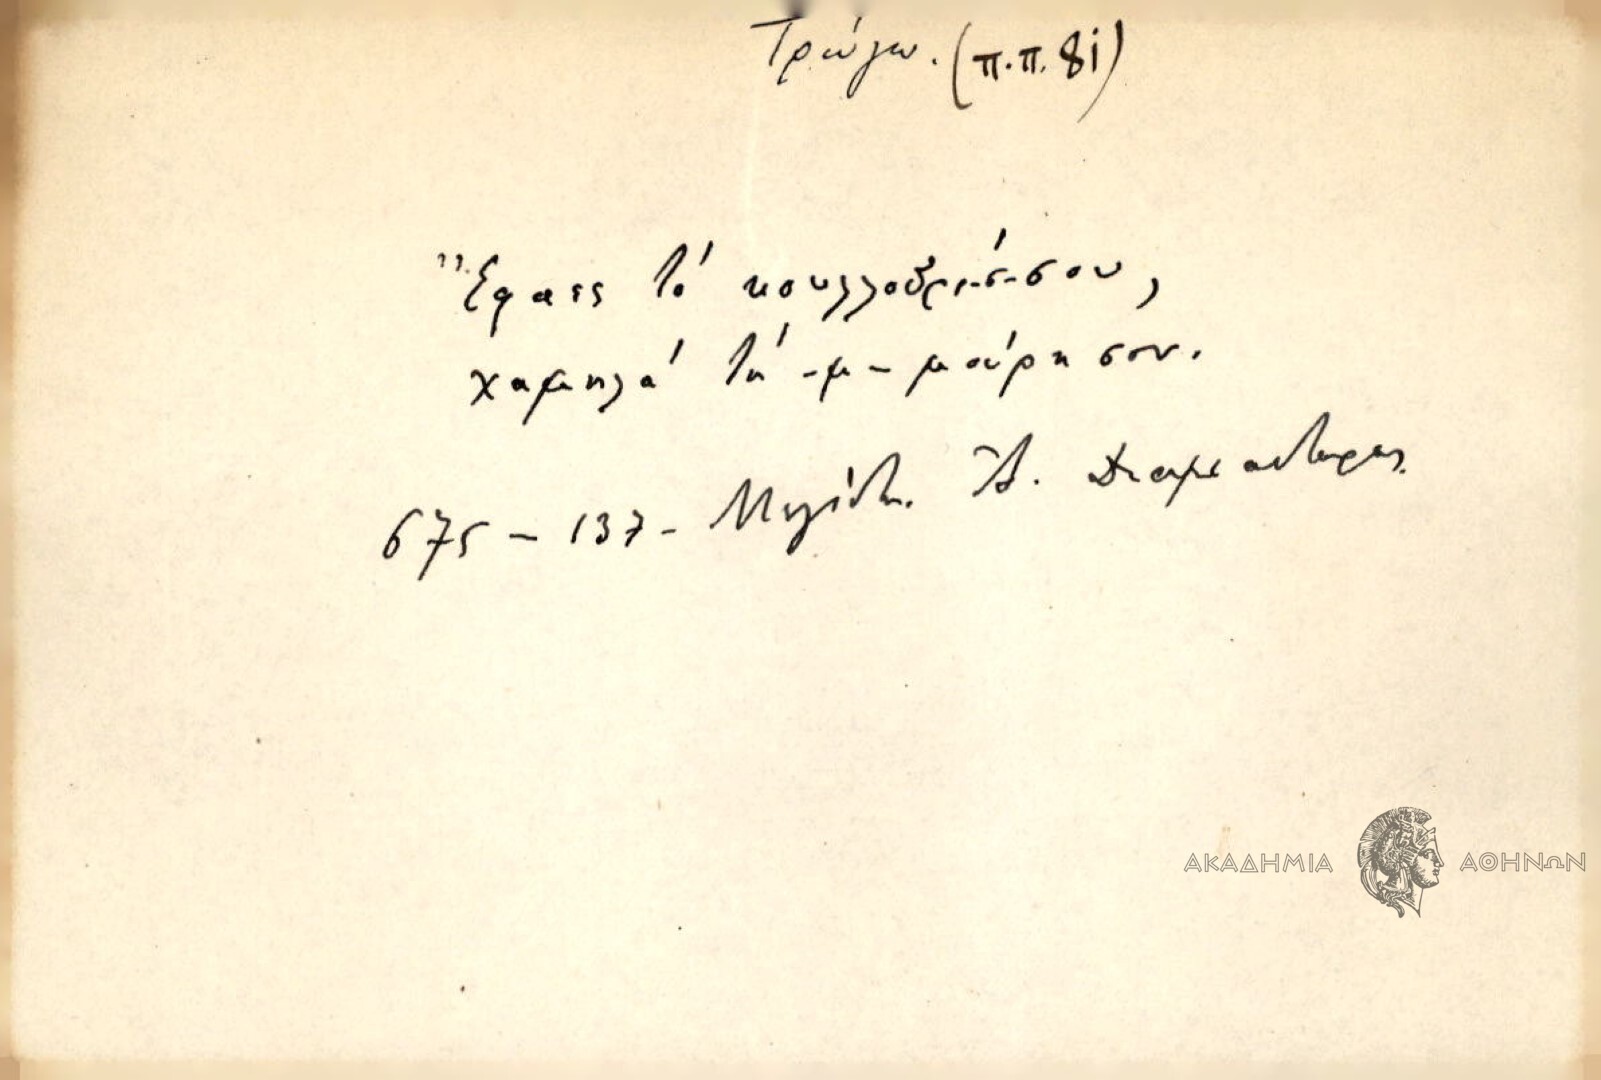 Τρώγω. (π.π. 81)
Ἔφαες τό κουλλούρι-σ-σου,
χαμηλά τή -μ- μούρη σου.
675 - 137 - Ἀ. Διαμανταρας.
ΑΚΑΔΗΜΙΑ ΑΘΗΝΩΝ